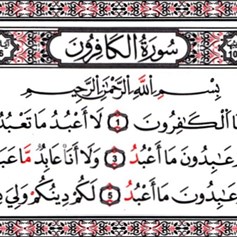 سُورَةُ الْكَافِرُونَ
بِسْمِ اللَّهِ الرَّحْمَٰنِ الرَّحِيمِ
الْكَٰفِرُونَ ١ لَا أَعْبُدُ مَا تَعْبُدُ
عَٰبِدُونَ مَا أَعْبُدُ ٣ وَلَا أَنَا عَابِدٌ مَّا
عَٰبِدُونَ مَا أَعْبُدُ ٥ لَكُمْ دِينُكُمْ وَلِيَ